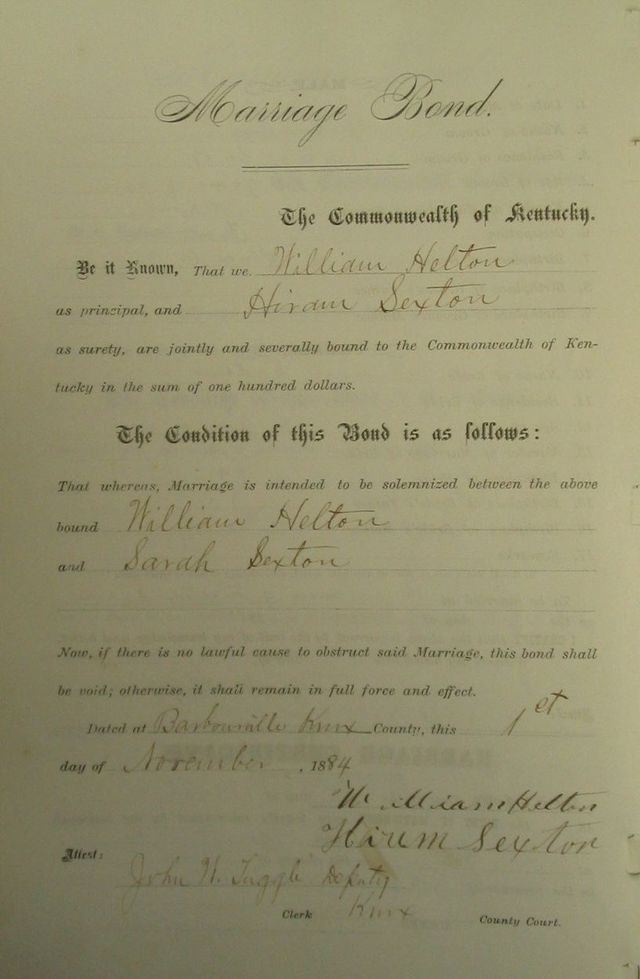 Marriage Bond.
The Commonwealth of Kentucky.
Be it Known, That we William Helton
as principal, and Hiram Sexton
as surety, are jointly and severally bound to the Commonwealth of Ken-
tucky in the sum of one hundred dollars.
The Condition of this Bond is as follows:
That whereas, Marriage is intended to be solemnized between the above
bound William Helton
and Sarah Sexton
Now, if there is no lawful cause to obstruct said Marriage, this bond shall
be void; otherwise, it shall remain in full force and effect.
Dated at Barbourville Knox County, this 1st
day of November, 1884
William Helton
Hirum Sexton
Attest:
John H. Tuggle Deputy
Clerk Knox County Court.